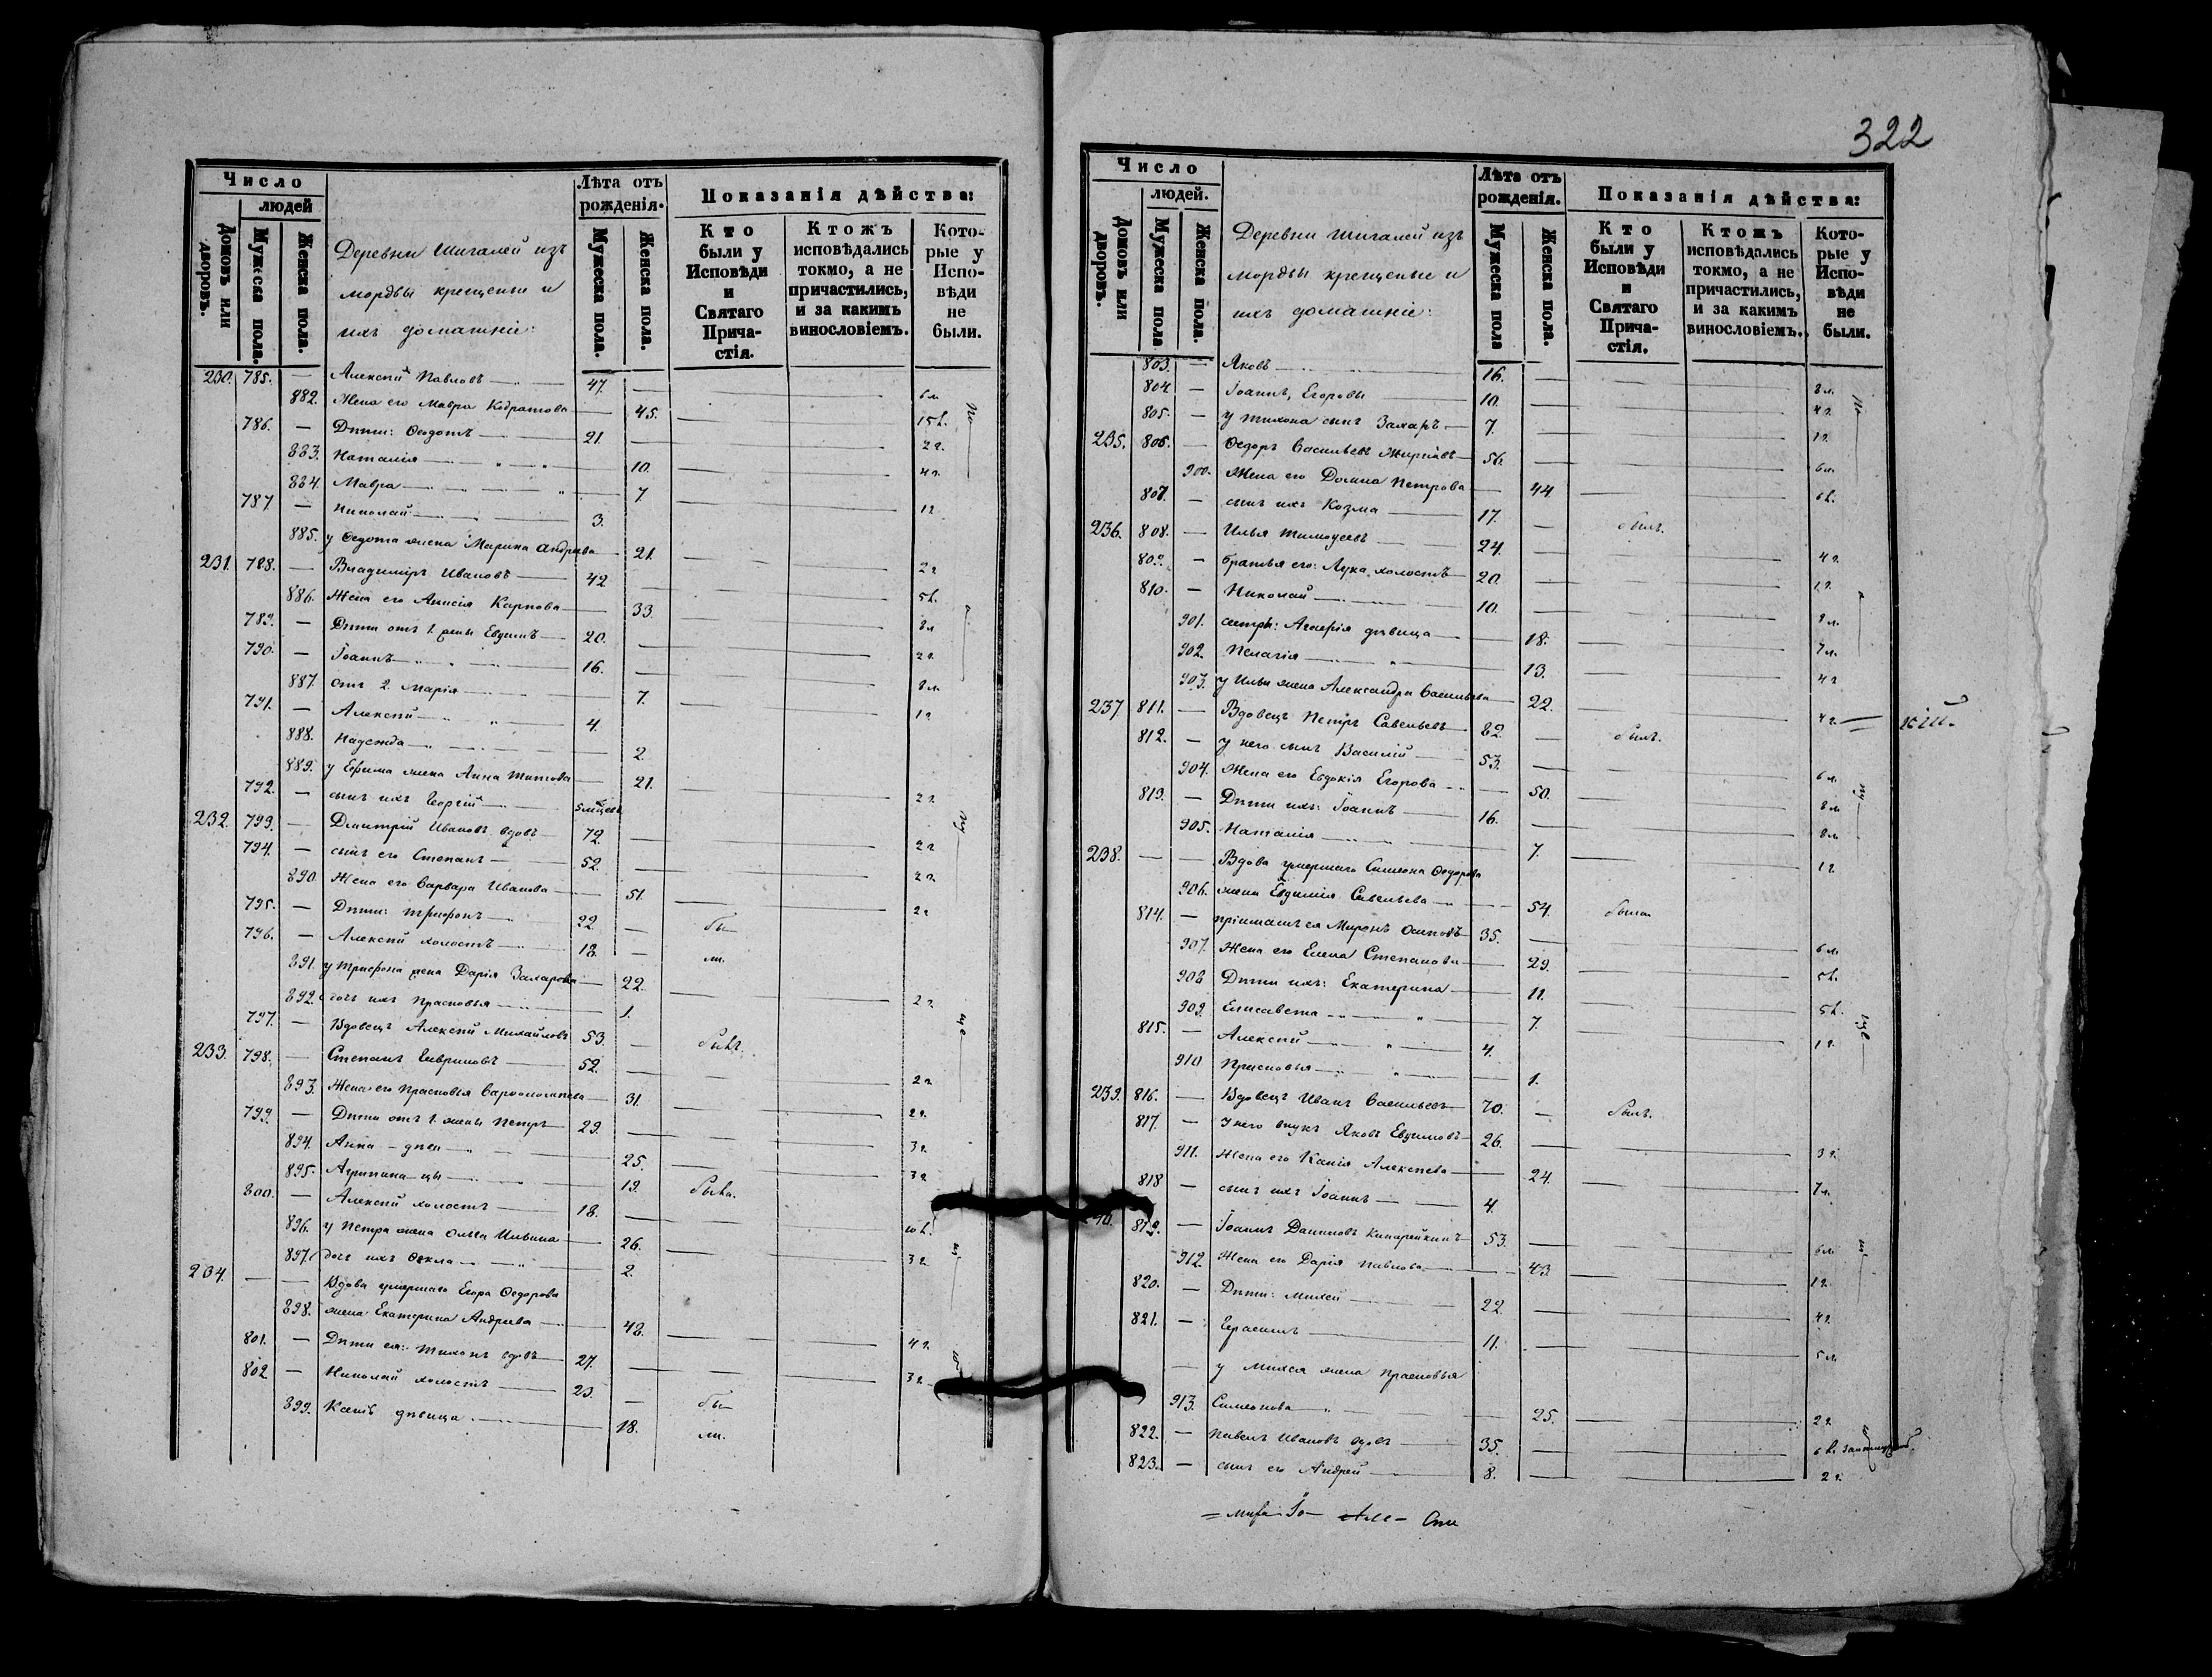 322
Число
людей
Домовъ или дворовъ.
Мужеска пола.
Женска пола.
Деревни Шигалей изъ
мордвы крещеные и
ихъ домашніе:
Лѣта отъ рожденія.
Мужеска пола.
Женска пола.
Показанія дѣйства:
Кто были у Исповѣди и Святаго Причастія.
Ктожъ исповѣдались токмо, а не причастились, и за какимъ винословіемъ.
Которые у Исповѣди не были.
230. 785. — Алексѣй Павловъ — 47. — 6 л.
882. Жена его Мавра — 45. —
786. — Дѣти: Ѳедотъ — 21. — 2 г.
883. Наталія — 10. — 4 г.
884. Мавра — 7. — 1 г.
787 — Николай — 3.
885. у Ѳедота жена Марина Андреева — 21. — 2 г
231. 788. — Владиміръ Ивановъ — 42. —
886. Жена его Анисія Карпова — 33. — 8 л
789. — Дѣти отъ 1. жены Евдимъ — 20. — 2 г.
790. — Іоаннъ — 16. — 8 л.
887. отъ 2. Марія — 7. — 1 г
791. — Алексѣй — 4.
888. Надежда — 2.
889. у Ефима жена Анна — 21. — 2 г.
792. — сынъ ихъ Георгій —
232. 793. — Димитрій Ивановъ вдовъ — 72. — 2 г
794. — сынъ его Степанъ — 52. — 2 г.
890. Жена его Варвара Иванова — 51. — 2 г
795. — Дѣти: Трифонъ — 22. — бы—
796. — Алексѣй холостъ — 18. — ли.
891. у Трифона жена Дарія Захарова — 22. — 2 г
892. дочь ихъ Прасковья — 1.
797. — Вдовецъ Алексѣй Михайловъ 53. — былъ.
233. 798. — Степанъ Гавриловъ — 52. — 2 г.
893. Жена его Прасковья Варѳоломеева — 31. — 2 г.
799. — Дѣти отъ 1. жены Петръ — 29. — 3 г.
894. Анна — дѣви — 25. — 3 г
895. Агрипина — цы — 19. — была.
800. — Алексѣй холостъ — 18. —
896. у Петра жена Ольга Ильина — 26. — 3 г
897. дочь ихъ Ѳекла — 2.
234. — — Вдова умершаго Егора Ѳедорова
898. жена Екатерина Андреева — 48. — 4 г.
801. — Дѣти ея: Тихонъ вдовъ — 27. — 3 г.
802 — Николай холостъ — 23. — бы—
899. Ксенія дѣвица — 18. ли.
Число
людей.
Домовъ или дворовъ.
Мужеска пола
Женска пола.
Деревни Шигалей изъ
мордвы крещеные и
ихъ домашніе:
Лѣта отъ рожденія.
Мужеска пола
Женска пола.
Показанія дѣйства:
Кто были у Исповѣди и Святаго Причастія.
Ктожъ исповѣдались токмо, а не причастились, и за какимъ винословіемъ.
Которые у Исповѣди не были.
803. — Яковъ — 16. — 8 л.
804. — Іоаннъ, Егоровы — 10. — 4 г.
805. — у Тихона сынъ Захаръ — 7. — 1 г.
235. 806. — Ѳедоръ Васильевъ — 56. — 6 л.
900. Жена его Домна Петрова — 44 —
807. — сынъ ихъ Козма — 17. — былъ.
236. 808. — Илья Тимоѳеевъ — 24. — 4 г.
809. — братья его: Лука холостъ — 20. — 1 г.
810. — Николай — 10. —
901. сестры: дѣвица — 18. — 7 л.
902. Пелагія — 13. — 4 г
903. у Ильи жена Александра Васильева — 22. — 4 г.
237 811. — Вдовецъ Петръ Савельевъ — 82. — былъ.
812. — у него сынъ Василій — 53. — 6 л.
904. Жена его Евдокія Егорова — 50. — 8 л.
813. — Дѣти ихъ: Іоаннъ — 16. — 8 л.
905. Наталія — 7. — 1 г.
238. — — Вдова умершаго Симеона Ѳедорова
906. жена Евдимія Савельева — 54. была
814. — Пріимашъ ея Миронъ Осиповъ — 35. — 6 л.
907. Жена его Елена Степанова — 29. —
908 Дѣти ихъ: Екатерина — 11. —
909. Елисавета — 7. — 1 г.
815. — Алексѣй — 4.
910 Прасковья — 1.
239. 816. — Вдовецъ Иванъ Васильевъ — 70. — былъ.
817. — у него внукъ Яковъ Евдимовъ — 26. — 3 г.
911. Жена его Алексеева — 24. — 7 л.
818 — сынъ ихъ Іоаннъ — 4.
819. — Іоаннъ Даниловъ — 53. — 6 л.
912. Жена его Дарія Павлова — 43. — 1 г.
820. — Дѣти: Михей — 22. — 4 г.
821. — Герасимъ — 11. — 5 л.
— у Михея жена Прасковья
913. Симеонова — 25. — 2 г.
822. — Павелъ Ивановъ вдовъ — 35. —
823. — сынъ его Андрей — 8. — 2 г.